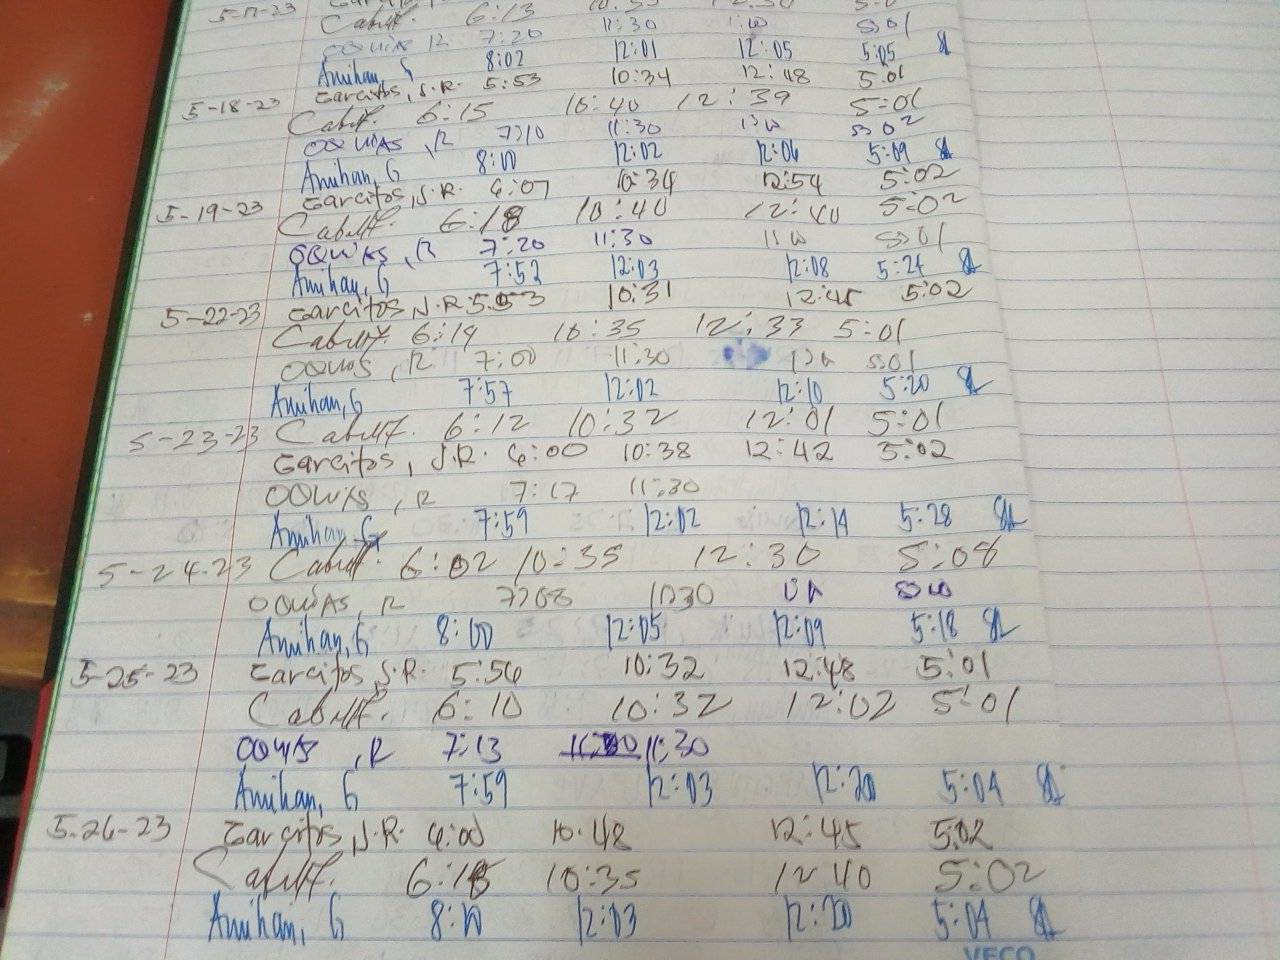 5-17-23
Cabuff. 6:13
OQUIAS, R 7:20 11:30 1:00 5:01
Amihan, G 8:02 12:01 12:05 5:05
Garcitos, J.R. 5:53 10:34 12:48 5:01
5-18-23 6:15 10:40 12:39 5:01
OQUIAS, R 7:10 11:30 5:02
Amihan, G 8:00 12:02 12:06 5:09
Garcitos, J.R. 6:07 10:34 12:54 5:02
5-19-23 6:18 10:40 12:40 5:02
OQUIAS, R 7:20 11:30 5:01
Amihan, G 7:52 12:03 12:08 5:24
5-22-23 Garcitos J.R 5:53 10:31 12:45 5:02
6:19 10:35 12:33 5:01
OQUIAS, R 7:00 11:30 5:01
Amihan, G 7:57 12:02 12:10 5:20
5-23-23 6:12 10:32 12:01 5:01
Garcitos, J.R. 6:00 10:38 12:42 5:02
OQUIAS, R 7:17 11:30
Amihan, G 7:59 12:02 12:14 5:28
5-24-23 6:02 10:35 12:30 5:08
OQUIAS, R 7:08
Amihan, G 8:00 12:05 12:09 5:18
5-25-23 Garcitos J.R. 5:56 10:32 12:48 5:01
6:10 10:32 12:02 5:01
OQUIAS, R 7:13 11:30
Amihan, G 7:59 12:03 12:20 5:04
5-26-23 Garcitos, J.R. 6:00 10:48 12:45 5:02
10:35 12 40 5:02
Amihan, G 8:00 12:03 12:20 5:04
VECO